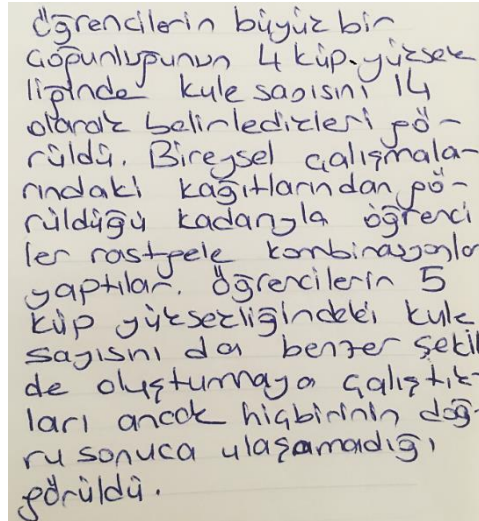 Öğrencilerin büyük bir
çoğunluğunun 4 küp yüksek
liğinde kule sayısını 14
olarak belirledikleri gö-
rüldü. Bireysel çalışmala-
rındaki kağıtlarından gö-
rüldüğü kadarıyla öğrenci
ler rastgele kombinasyonlar
yaptılar. Öğrencilerin 5
küp yüksekliğindeki kule
sayısnı da benzer şekil
de oluşturmaya çalıştık-
ları ancak hiçbirinin doğ-
ru sonuca ulaşamadığı
görüldü.